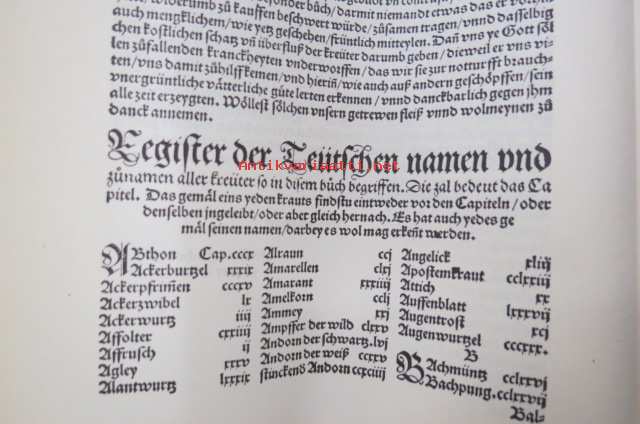 auch mengklichem/wie yetz geschehen/früntlich mitteylen. Dañ vns ye Gott söl
len zůfallenden kranckheyten vnderworffen/das wir sie zur notturfft brauch
ten/vns damit zůhilff kemen/vnd hieriñ/wie auch auß andern geschöpffen/sein
vnergrüntliche vätterliche güte lerten erkennen/vnnd danckbarlich gegen jhm
alle zeit erzeygten. Wöllest solchen vnsern getrewen fleiß vnnd wolmeynen zů
danck annemen.
Register der Teütschen namen vnd
Antikvariaatti.net
zůnamen aller kreüter so in disem bůch begriffen. Die zal bedeut das Ca
pitel. Das gemäl eins yeden krauts findstu eintweder vor den Capiteln/oder
denselben ingeleibt/oder aber gleich hernach. Es hat auch yedes ge
mäl seinen namen/darbey es wol mag erkeñt werden.
ABthon Cap.cccx
Ackerburtzel xxxix
Ackerpfrim̃en cccxv
Ackerzwibel lx
Ackerwurtz iiij
Affolter cxxiiij
Affrusch ij
Agley xxxv
Alantwurtz lxxxix
Alraun ccj
Amarellen clxj
Amarant xxxiiij
Amelkorn cclj
Ammey xxj
Ampffer der wild clxxv
Andorn der schwartz.lvj
Andorn der weiß ccxxv
stinckend Andorn ccxciiij
Angelick xliij
Apostemkraut cclxxiij
Attich xx
Auffenblatt lxxxvij
Augentrost xcj
Augenwurtzel cccxxx.
B
BAchmüntz cclxxvj
Bachpung.cclxxvij
Bal-